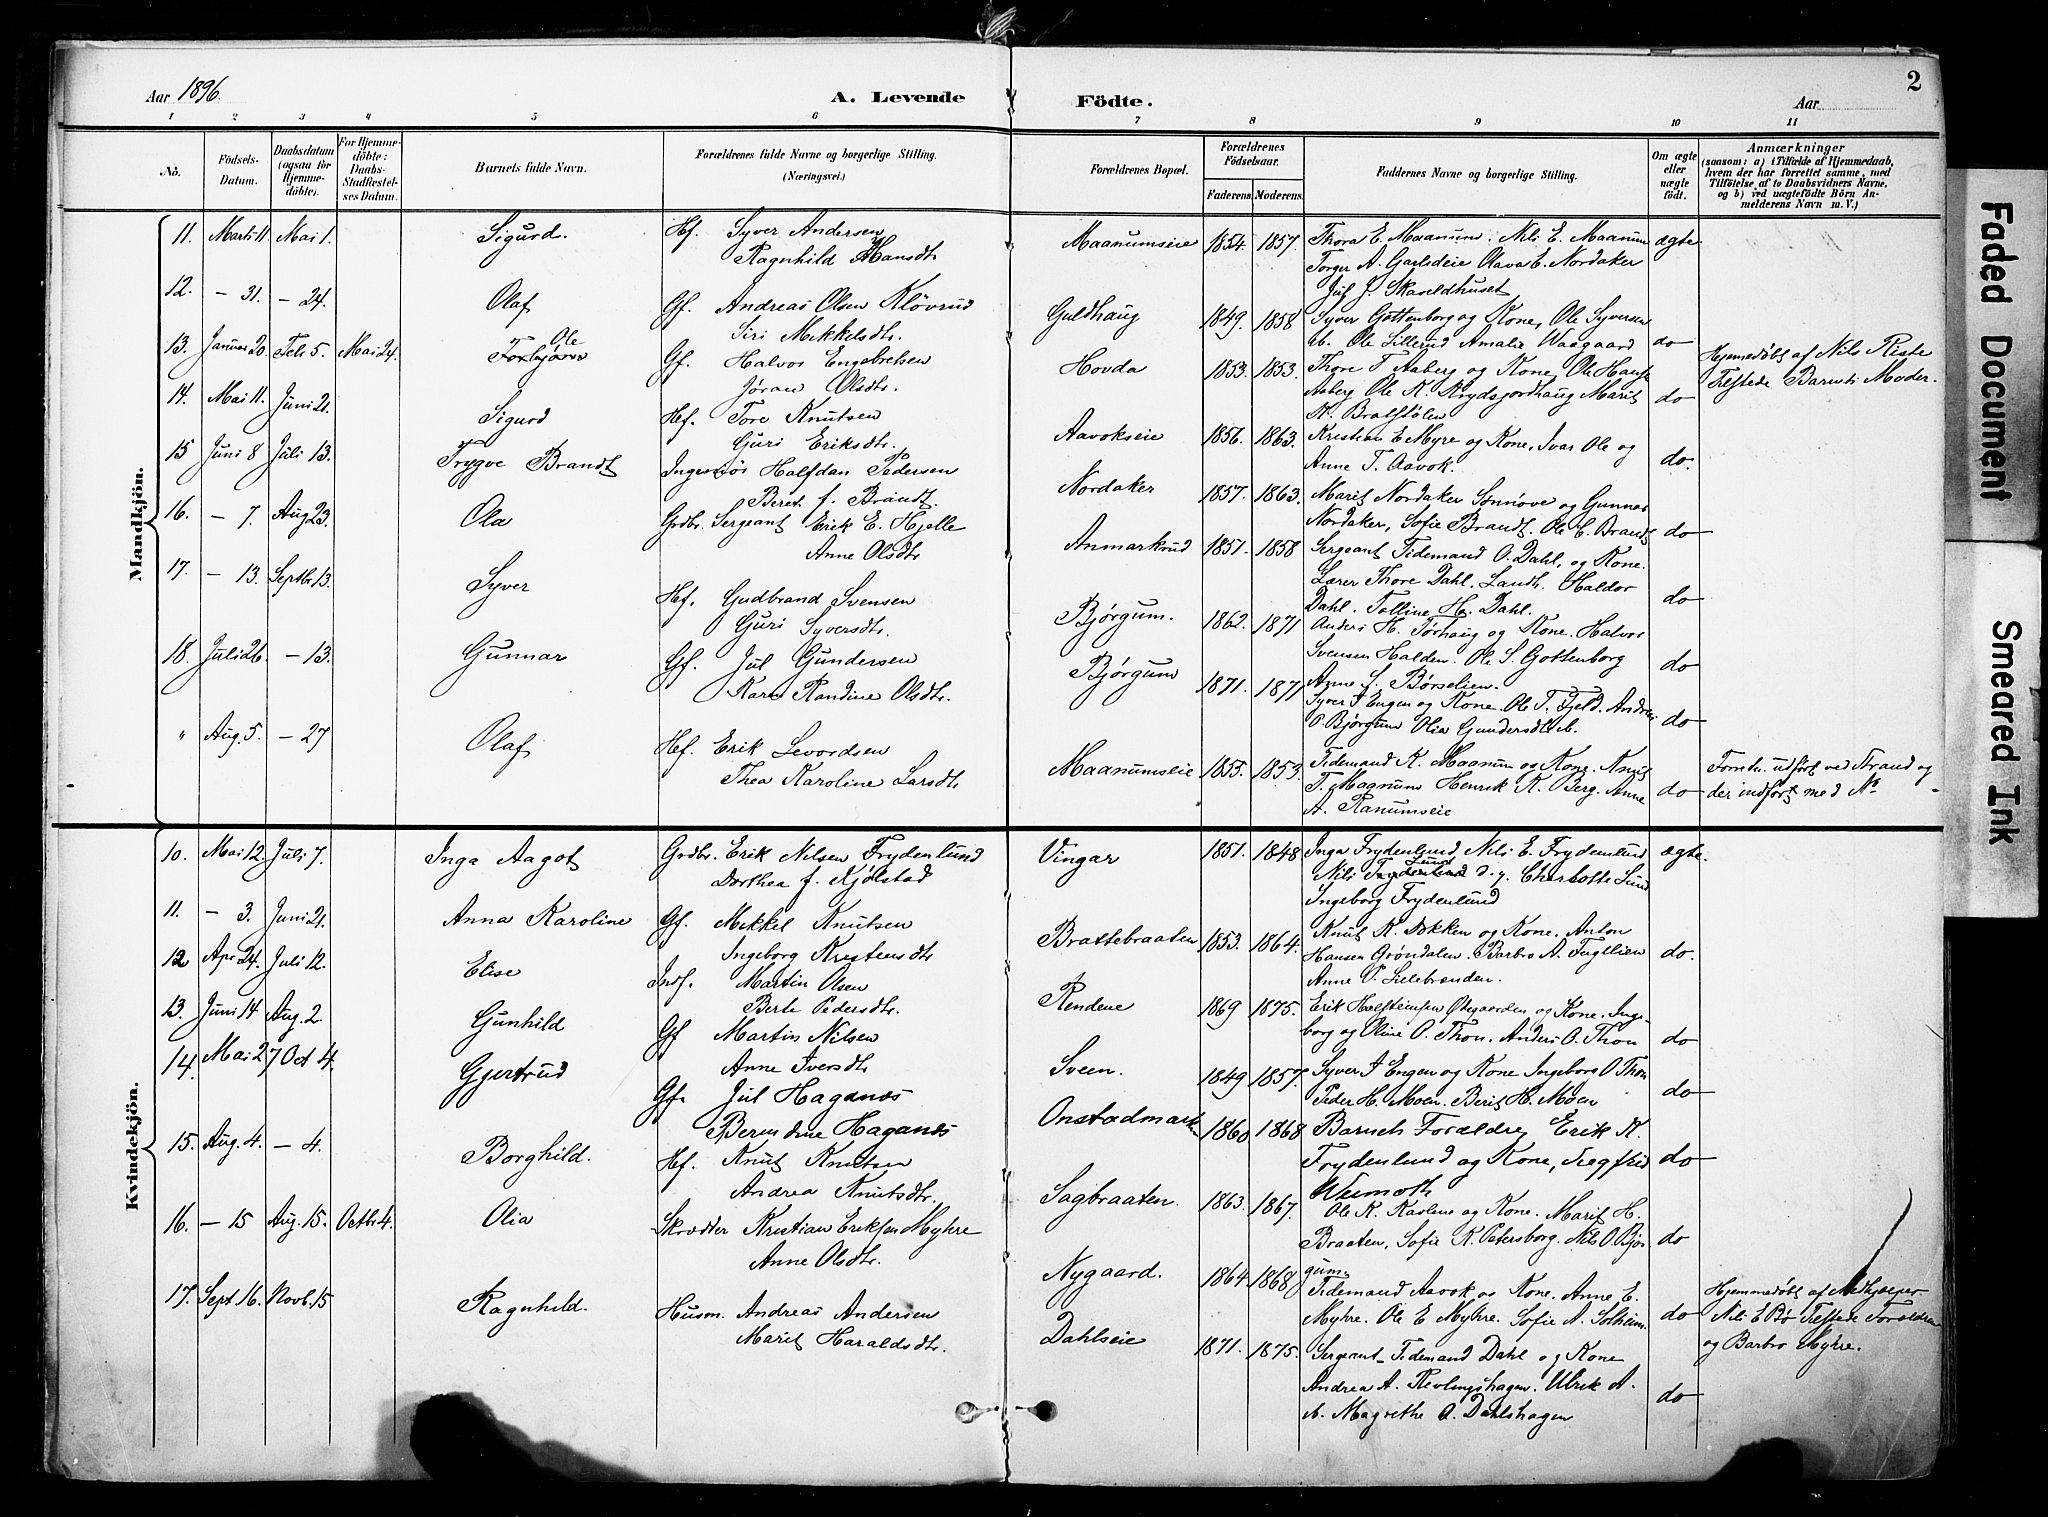 Aar 1896.
A. Levende
Födte.
Aar
2
1 2 3 4 5 6 7 8 9 10 11
No.
Födsels-Datum.
Daabsdatum (ogsaa for Hjemmedöbte).
For Hjemmedöbte: Daabs-Stadfæstelses Datum.
Barnets fulde Navn.
Forældrenes fulde Navne og borgerlige Stilling. (Næringsvei.)
Forældrenes Bopæl.
Forældrenes Födselsaar.
Faderens. Moderens.
Faddernes Navne og borgerlige Stilling.
Om ægte eller uægte födt.
Anmærkninger
(saasom: a) i Tilfælde af Hjemmedaab, hvem der har forrettet samme, med Tilföielse af to Daabsvidners Navne, og b) ved uægtefödte Börn Anmelderens Navn m. V.)
Mandkjön.
11. Marts 11. Mai 1. Sigurd. Hf. Syver Andersen
Ragnhild Hansdtr
Maanumseie 1854. 1857. Thora E. Maanum. Nils E. Maanum ægte
Torger A. Garlseie Olava E. Nordaker
Jul J. Skaveldhuset
12. – 31. – 24. Olaf Gf. Andreas Olsen Kløvrud
Siri Mikkelsdtr.
Guldhaug 1849. 1858 Syver Gottenborg og Kone, Ole Syversen
Ole Lillerud Amalie Waagaard do
13. Januar 20. Feb 5. Mai 24. Ole
Torbjørn Gf. Halvor Engebretsen
Jøran Olsdtr.
Hovda 1853. 1853. Thore T. Aaberg og Kone, Ole Hans
Aaberg Ole K. Marit do
K. Bratstølen
Hjemmedøbt af Nils Riste
Tilstede Barnets Moder.
14. Mai 11. Juni 21. Sigurd Hf. Tore Knutsen
Guri Eriksdtr.
Aavokseie 1856. 1863. Kristian E Myre og Kone, Ivar Ole og
Anne T. Aavok. do.
15 Juni 8 Juli 13. Trygve Brandt Ingeniør Halfdan Pedersen
Beret f. Brandt.
Nordaker 1857. 1863. Marit Nordaker Sønnøve og Gunnar
Nordaker, Sofie Brandt. Ole E. Brandt do
16. – 7. Aug 23. Ola Grdbr. Sergeant Erik E. Hjelle
Anne Olsdtr
Anmarkrud 1851. 1858 Sergeant Tidemand O. Dahl, og Kone.
Lærer Thore Dahl. Landh. Haldor
Dahl. Tolline H. Dahl. do
17. – 13. Septbr 13. Syver Hf. Gudbrand Svensen
Guri Syversdtr.
Bjørgum. 1862. 1871 Anders H. Tørhaug og Kone. Halvor
Svensen Halden. Ole S. Gottenborg do
Anne S. Børselien.
18. Juli 26. – 13. Gunnar Gf. Jul Gundersen
Karn Randine Olsdtr.
Bjørgum 1871. 1871 Syver I Engen og Kone. Ole T. Fjeld. Andreas
O. Bjørgum Olia Gundersdtr do
" Aug. 5. – 27 Olaf Hf. Erik Levordsen
Thea Karoline Larsdtr.
Maanumseie 1855. 1853. Tidemand K. Maanum og Kone. Knut
T. Magnum Henrik K. Berg. Anne do
A. Ranumseie
Forretn. udført ved Strand og
der indført med No –
Kvindekjön.
10. Mai 12. Juli 7. Inga Aagot Grdbr. Erik Nilsen Frydenlund
Dorthea f. Kjølstad
Vingar 1851. 1848 Inga Frydenlund, Nils E. Frydenlund ægte.
Nils Frydenlund d. y. Charlotte Lund
Ingeborg Frydenlund
11. – 3. Juni 21. Anna Karoline Gf. Mikkel Knutsen
Ingeborg Kristensdtr
Brattebraaten 1853. 1864. Knut K. Døkken og Kone. Anton
Hansen Grøndalen. Barbro A. Fugllien do.
Anne P. Lillebrenden.
12 Apr 24. Juli 12. Elise Indf. Martin Olsen
Berte Pedersdtr.
Rendene 1869 1875. Erik Halfsteinsen Ødegaarden og Kone. Inge-
borg og Oline O. Thon. Anders O. Thon do
13. Juni 14 Aug. 2. Gunhild Gf Martin Nilsen
Anne Iversdtr
Sveen. 1849 1857. Syver I Engen og Kone Ingeborg O Thon
Peder H. Moen. Berit H. Moen do
14. Mai 27 Oct 4. Gjertrud Gf. Jul Haganæs
Berndine Haganæs
Onstadmarken 1860 1868 Barnets Forældre, Erik K.
Frydenlund og Kone, Siegfrid do
Weimoth
15. Aug. 4. – 4. Borghild. Hf. Knut Knutsen
Andrea Knutsdtr.
Sagbraaten. 1863. 1867. Ole K. Kaslene og Kone. Marit H.
Braaten, Sofie K. Petersborg. Nils O Bjør do
gum.
16. – 15 Aug. 15. Octbr 4. Olia Skrædder Kristian Eriksen Myhre
Anne Olsdtr.
Nygaard. 1864. 1868 Tidemand Aavok og Kone. Anne E.
Myhre. Ole E Myhre. Sofie A. Solheim. do
Hjemmedøbt af Medhjælper
Nils E Bø Tilstede Forældrene
og Barbro Myhre.
17. Sept 16. Novb. 15 Ragnhild. Husm. Andreas Andersen
Marit Haraldsdtr.
Dahlseie 1871. 1875. Sergeant Tidemand Dahl og Kone
Andrea A. Revlingshagen. Ulrik A. do
Magrethe A. Dahlshagen
Faded Document
Smeared Ink